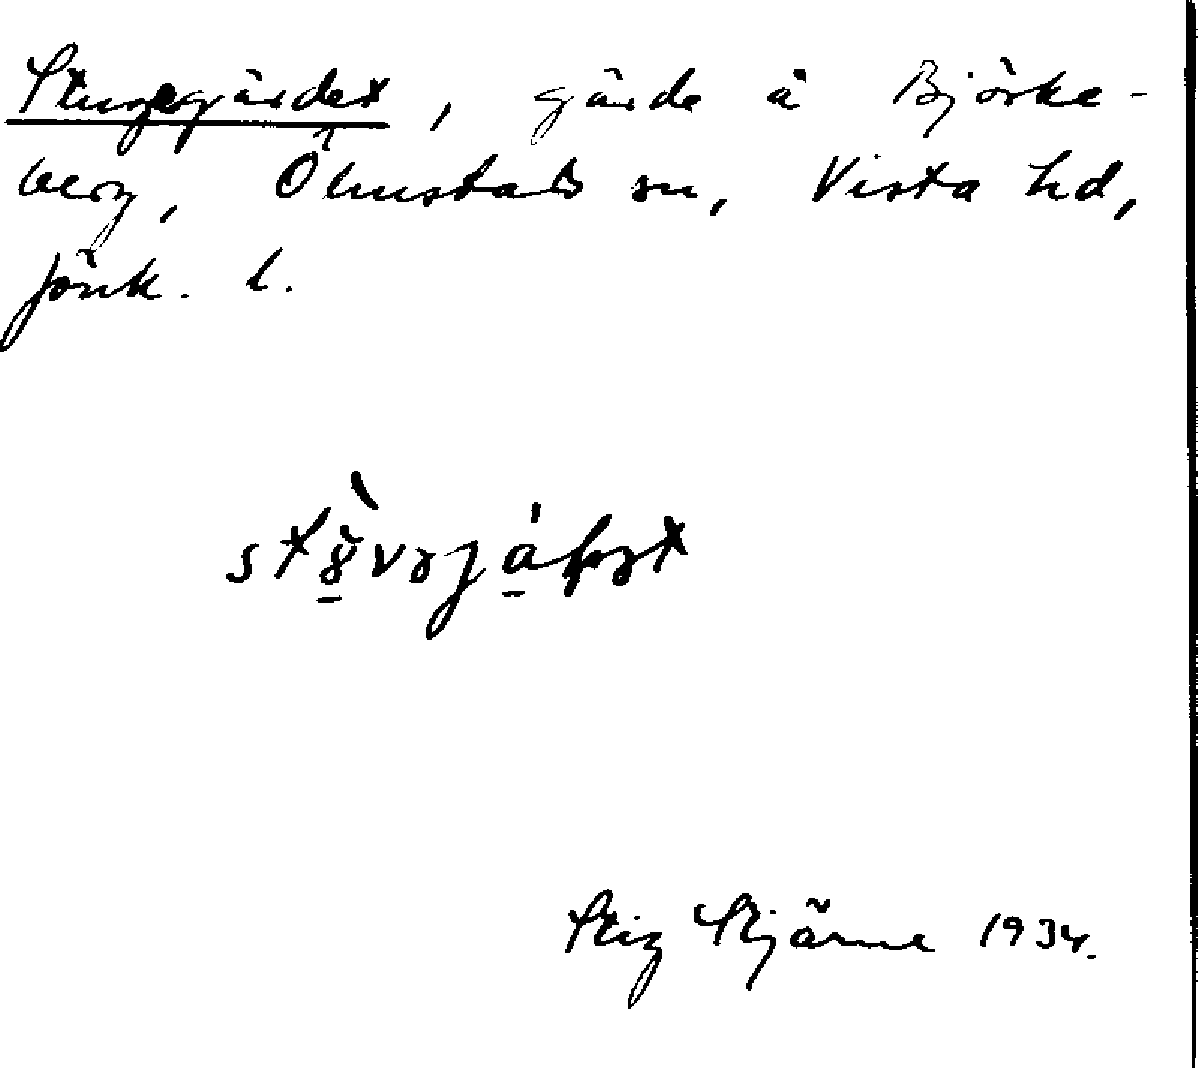 Stugegärdet, gärde å Björke-
berg, Ölmstads sn, Vista hd,
Jönk. l.
Stig Stjärne 1934.